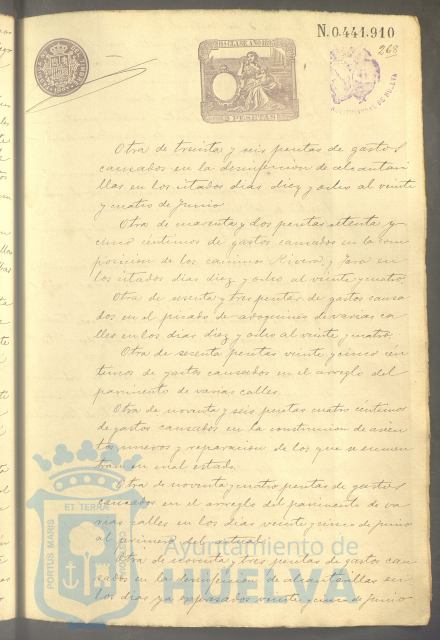 N.0.441.910
268
2 PESETAS
Otra de treinta y seis pesetas de gastos
causados en la desinfección de alcantari-
llas en los citados dias diez y ocho al veinte
y cuatro de Junio
Otra de cuarenta y dos pesetas setenta y
cinco céntimos de gastos causados en la com-
posicion de los caminos Rivera y Jara en
los citados dias diez y ocho al veinte y cuatro.
Otra de sesenta y tres pesetas de gastos causa-
dos en el picado de adoquines de varias ca-
lles en los dias diez y ocho al veinte y cuatro.
Otra de sesenta pesetas veinte y cinco cén-
timos de gastos causados en el arreglo del
pavimento de varias calles.
Otra de noventa y seis pesetas cuatro céntimos
de gastos causados en la construccion de asien-
tos y reparacion de los que se encuen-
tran en mal estado.
Otra de noventa y cuatro pesetas de gastos
causados en el arreglo del pavimento de va-
rias calles en los dias veinte y cinco de junio
al primero del actual.
Otra de noventa y tres pesetas de gastos cau-
sados en la desinfección de alcantarillas en
los dias ya expresados veinte y cinco de Junio
PORTUS MARIS
ET TERRÆ
Ayuntamiento de
HUELVA